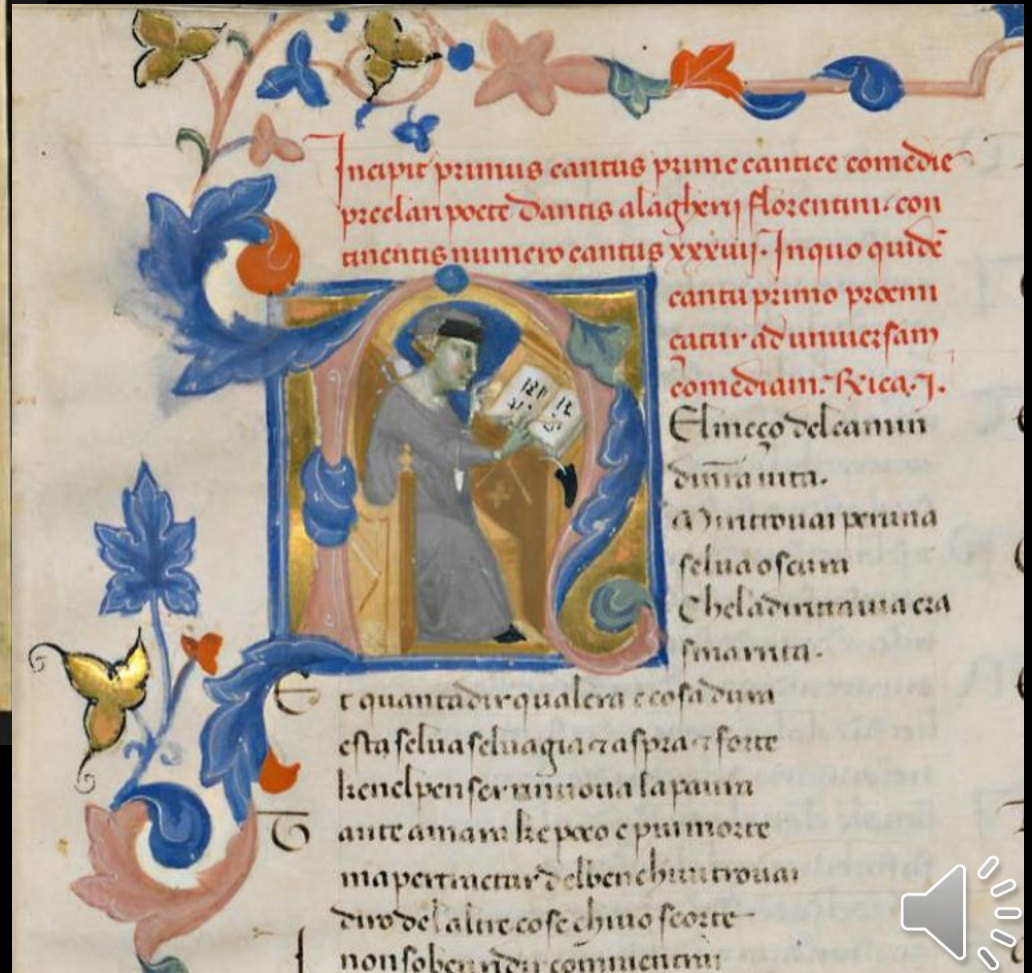 Incipit primus cantus prime cantice comedie
preclari poete dantis alagherij florentini. con
tinentis numero cantus xxxiiij. In quo quidē
cantu primo prœmi
catur ad uniuersam
comediam. Rica. j.
N
El meço del camin
di n̄ra uita.
Mi ritrouai per una
selua oscura
Che la diritta uia era
smarrita.
Et quanta dir qual era e cosa dura
esta selua seluagia ⁊ aspra ⁊ forte
ke nel penser rinnoua la paura
Tante amara ke poco e piu morte
ma per tractar del ben chiui trouai
diro del altre cose chiuo scorte